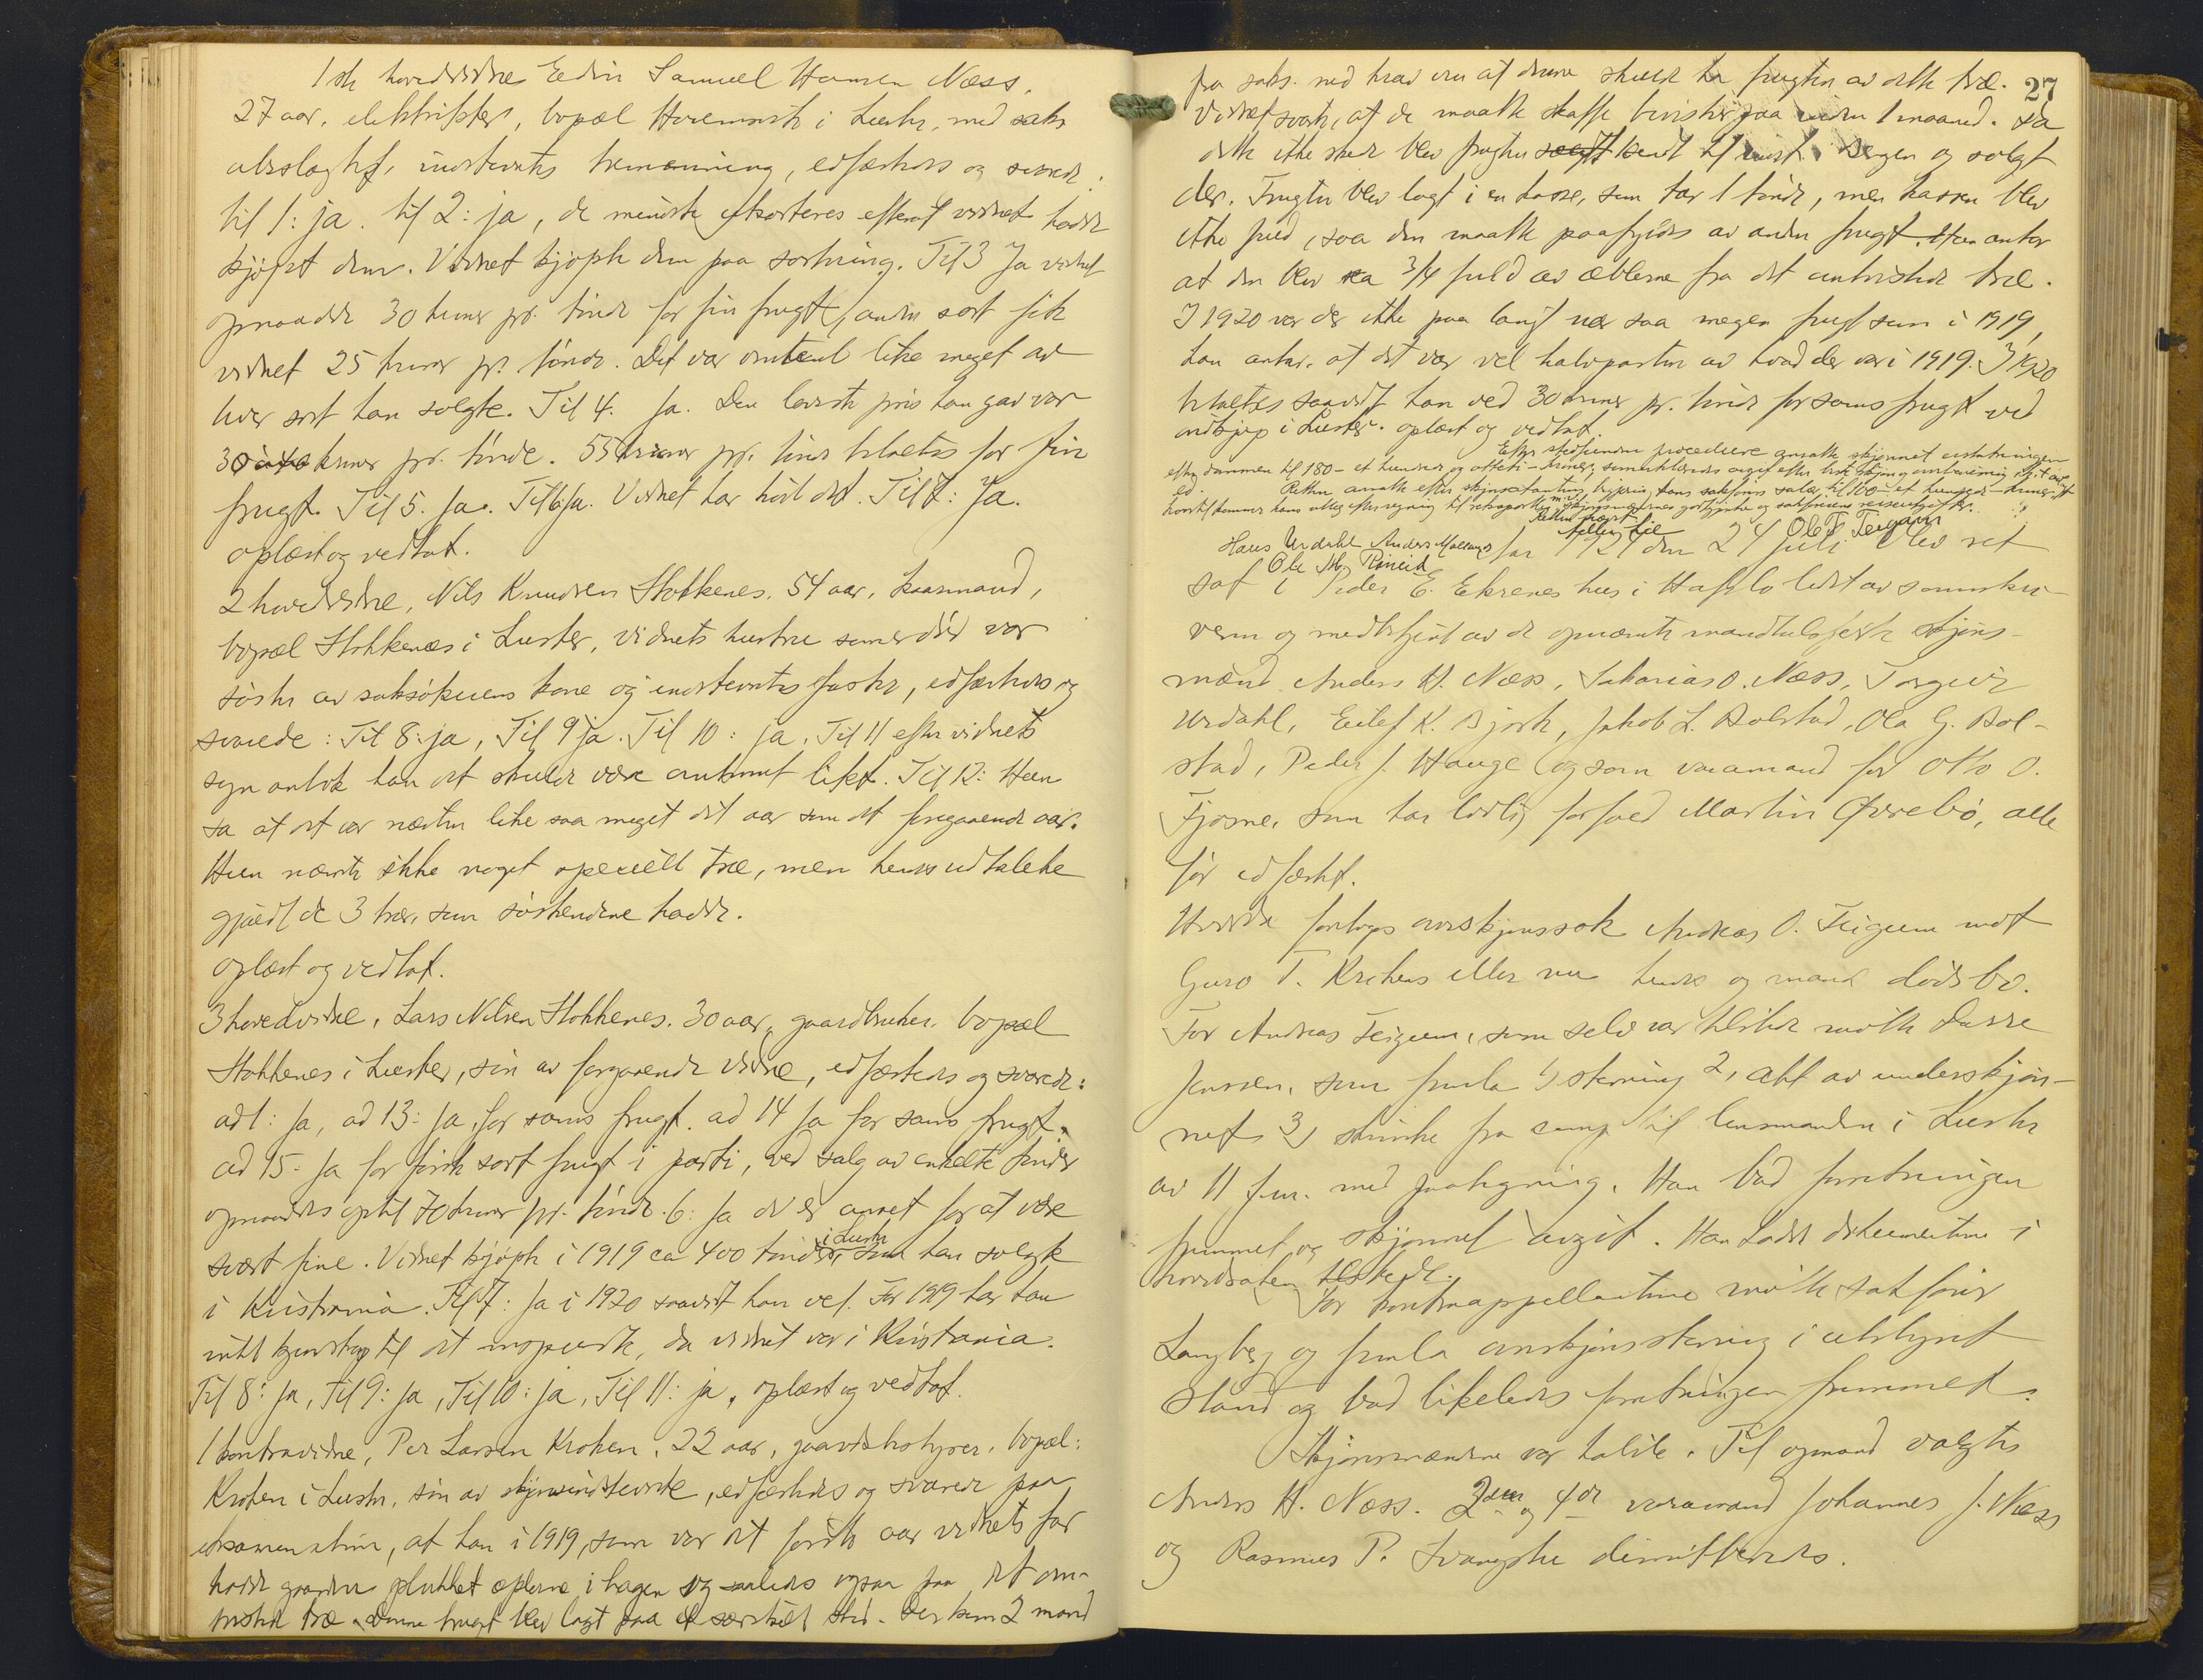 1ste hovedvidne Edvin Samuel Hansen Næss,
27 aar, elektriker, bopæl Havemark i Luster, med saks
ubeslægtet, indstevntes tremenning, edfæstedes og svarede:
til 1: ja. til 2: ja, de mindste utsorteres efterat vidnet hadde
kjøpt dem. Vidnet kjøpte dem paa sortering. Til 3 Ja vidnet
opnaadde 30 kroner pr. tønde for fin frugt, anden sort fik
vidnet 25 kroner pr. tønde. Det var omtrent like meget av
hver sort han solgte. Til 4. Ja. Den laveste pris han gav var
30 kroner pr. tønde. 55 kroner pr. tønde betaltes for fin
frugt. Til 5. Ja. Til 6 Ja. Vidnet har hørt det. Til 7: Ja.
oplæst og vedtat.
2 hovedvidne, Nils Knudsen Stokkenes, 54 aar, gaardmand,
bopæl Stokkenæs i Luster, vidnets hustru som er død var
søster av saksøkerens kone og indstevntes faster, edfæstedes og
svarede: Til 8: ja, Til 9 ja. Til 10: Ja, Til 11 efter vidnets
syn antok han det skulde være omtrent likt. Til 12: Hun
sa at det var næsten like saa meget det aar som det foregaaende aar.
Hun nævnte ikke noget specielt træ, men hendes udtalelse
gjaldt de 3 trær, som søskendene hadde.
oplæst og vedtat.
3 hovedvidne, Lars Nilsen Stokkenes, 30 aar, gaardbruker, bopæl
Stokkenes i Luster, søn av forgaaende vidne, edfæstedes og svarede:
ad 1: Ja, ad 13: Ja, for sams frugt. ad 14 Ja for sams frugt.
ad 15. Ja for første sort frugt i parti, ved salg av enkelte tønder
opnaaddes optil 70 kroner pr. tønde. 6: Ja de er anset for at være
svært fine. Vidnet kjøpte i 1919 ca 400 tønder i Luster som han solgte
i Kristiania. Til 7: Ja i 1920 saavidt han vet. For 1919 har han
intet kjendskap til det omspurte, da vidnet var i Kristiania.
Til 8: Ja, Til 9: Ja, Til 10: ja, Til 11: ja, oplæst og vedtat.
1 kontravidne, Per Larsen Kroken, 22 aar, gaardsbestyrer, bopæl:
Kroken i Luster, søn av skjønsindstevnte, edfæstedes og svarede paa
eksamination, at han i 1919, som var det første aar vidnets far
hadde gaarden plukket æplerne i hagen og saaledes ogsaa paa det om-
tvistede træ. Denne frugt blev lagt paa et særskilt sted. Der kom 2 mand
27
fra saks. med krav om at denne skulde ha frugten av dette træ.
Vidnet svarte, at de maatte skaffe bevis herpaa inden 1 maaned. Da
dette ikke skede blev frugten sendt til Bergen og solgt
der. Frugten blev lagt i en kasse, som tar 1 tønde, men kassen blev
ikke fuld, saa den maatte paafyldes av anden frugt. Han antar
at den blev ca 3/4 fuld av æblerne fra det omtvistede træ.
I 1920 var der ikke paa langt nær saa megen frugt som i 1919,
han antar, at det var vel halvparten av hvad der var i 1919. I 1920
betaltes saavidt han ved 30 kroner pr. tønde for sams frugt ved
opkjøp i Luster. oplæst og vedtat.
Efter stedfunden procedure ansatte skjønnet erstatningen
efter dommen til 180 – et hundrede og otteti – kroner,
ed. Retten ansatte efter
Retten hævet.
Hans Urdahl Anders Ole T. Teigum
Ole M.
Aar 1921 den 24 juli blev ret
sat i Peder E. Ekrenes hus i Hafslo ledet av sorenskri-
veren og medbetjent av de opnævnte mandtalsførte skjøns-
mænd Anders H. Næss, Sakarias O. Næss, Torgeir
Urdahl, Eilef K. Bjørk, Jakob L. Bolstad, Ola G. Bol-
stad, Peder J. Hauge og som varamand for Otto O.
Fjøsne, som har lovlig forfald Martin Øvrebø, alle
før edfæstet.
Hvorda foretoges overskjønssak Andreas O. Teigum mot
Guro T. Krekens eller nu hendes og mands dødsbo.
For Andreas Teigum, som selv var tilstede møtte Dasse
Jensen, som fremla 1) stevning 2, akt av underskjøn-
net 3) skrivelse fra samme til lensmanden i Luster
av 11 f.m. med paategning. Han bad forretningen
fremmet og skjønnet avgit. Han hadde dokumenterne i
hovedsaken tilstede.
For kontraappellantinne møtte sakfører
Langberg og fremla overskjønsstevning i utstyret
stand og bad likeledes forretningen fremmet.
Skjønsmændene var talrike. Til opmand valgtes
Anders H. Næss. 2den og 4de varamand Johannes J. Næss
og Rasmus P. dimitteredes.